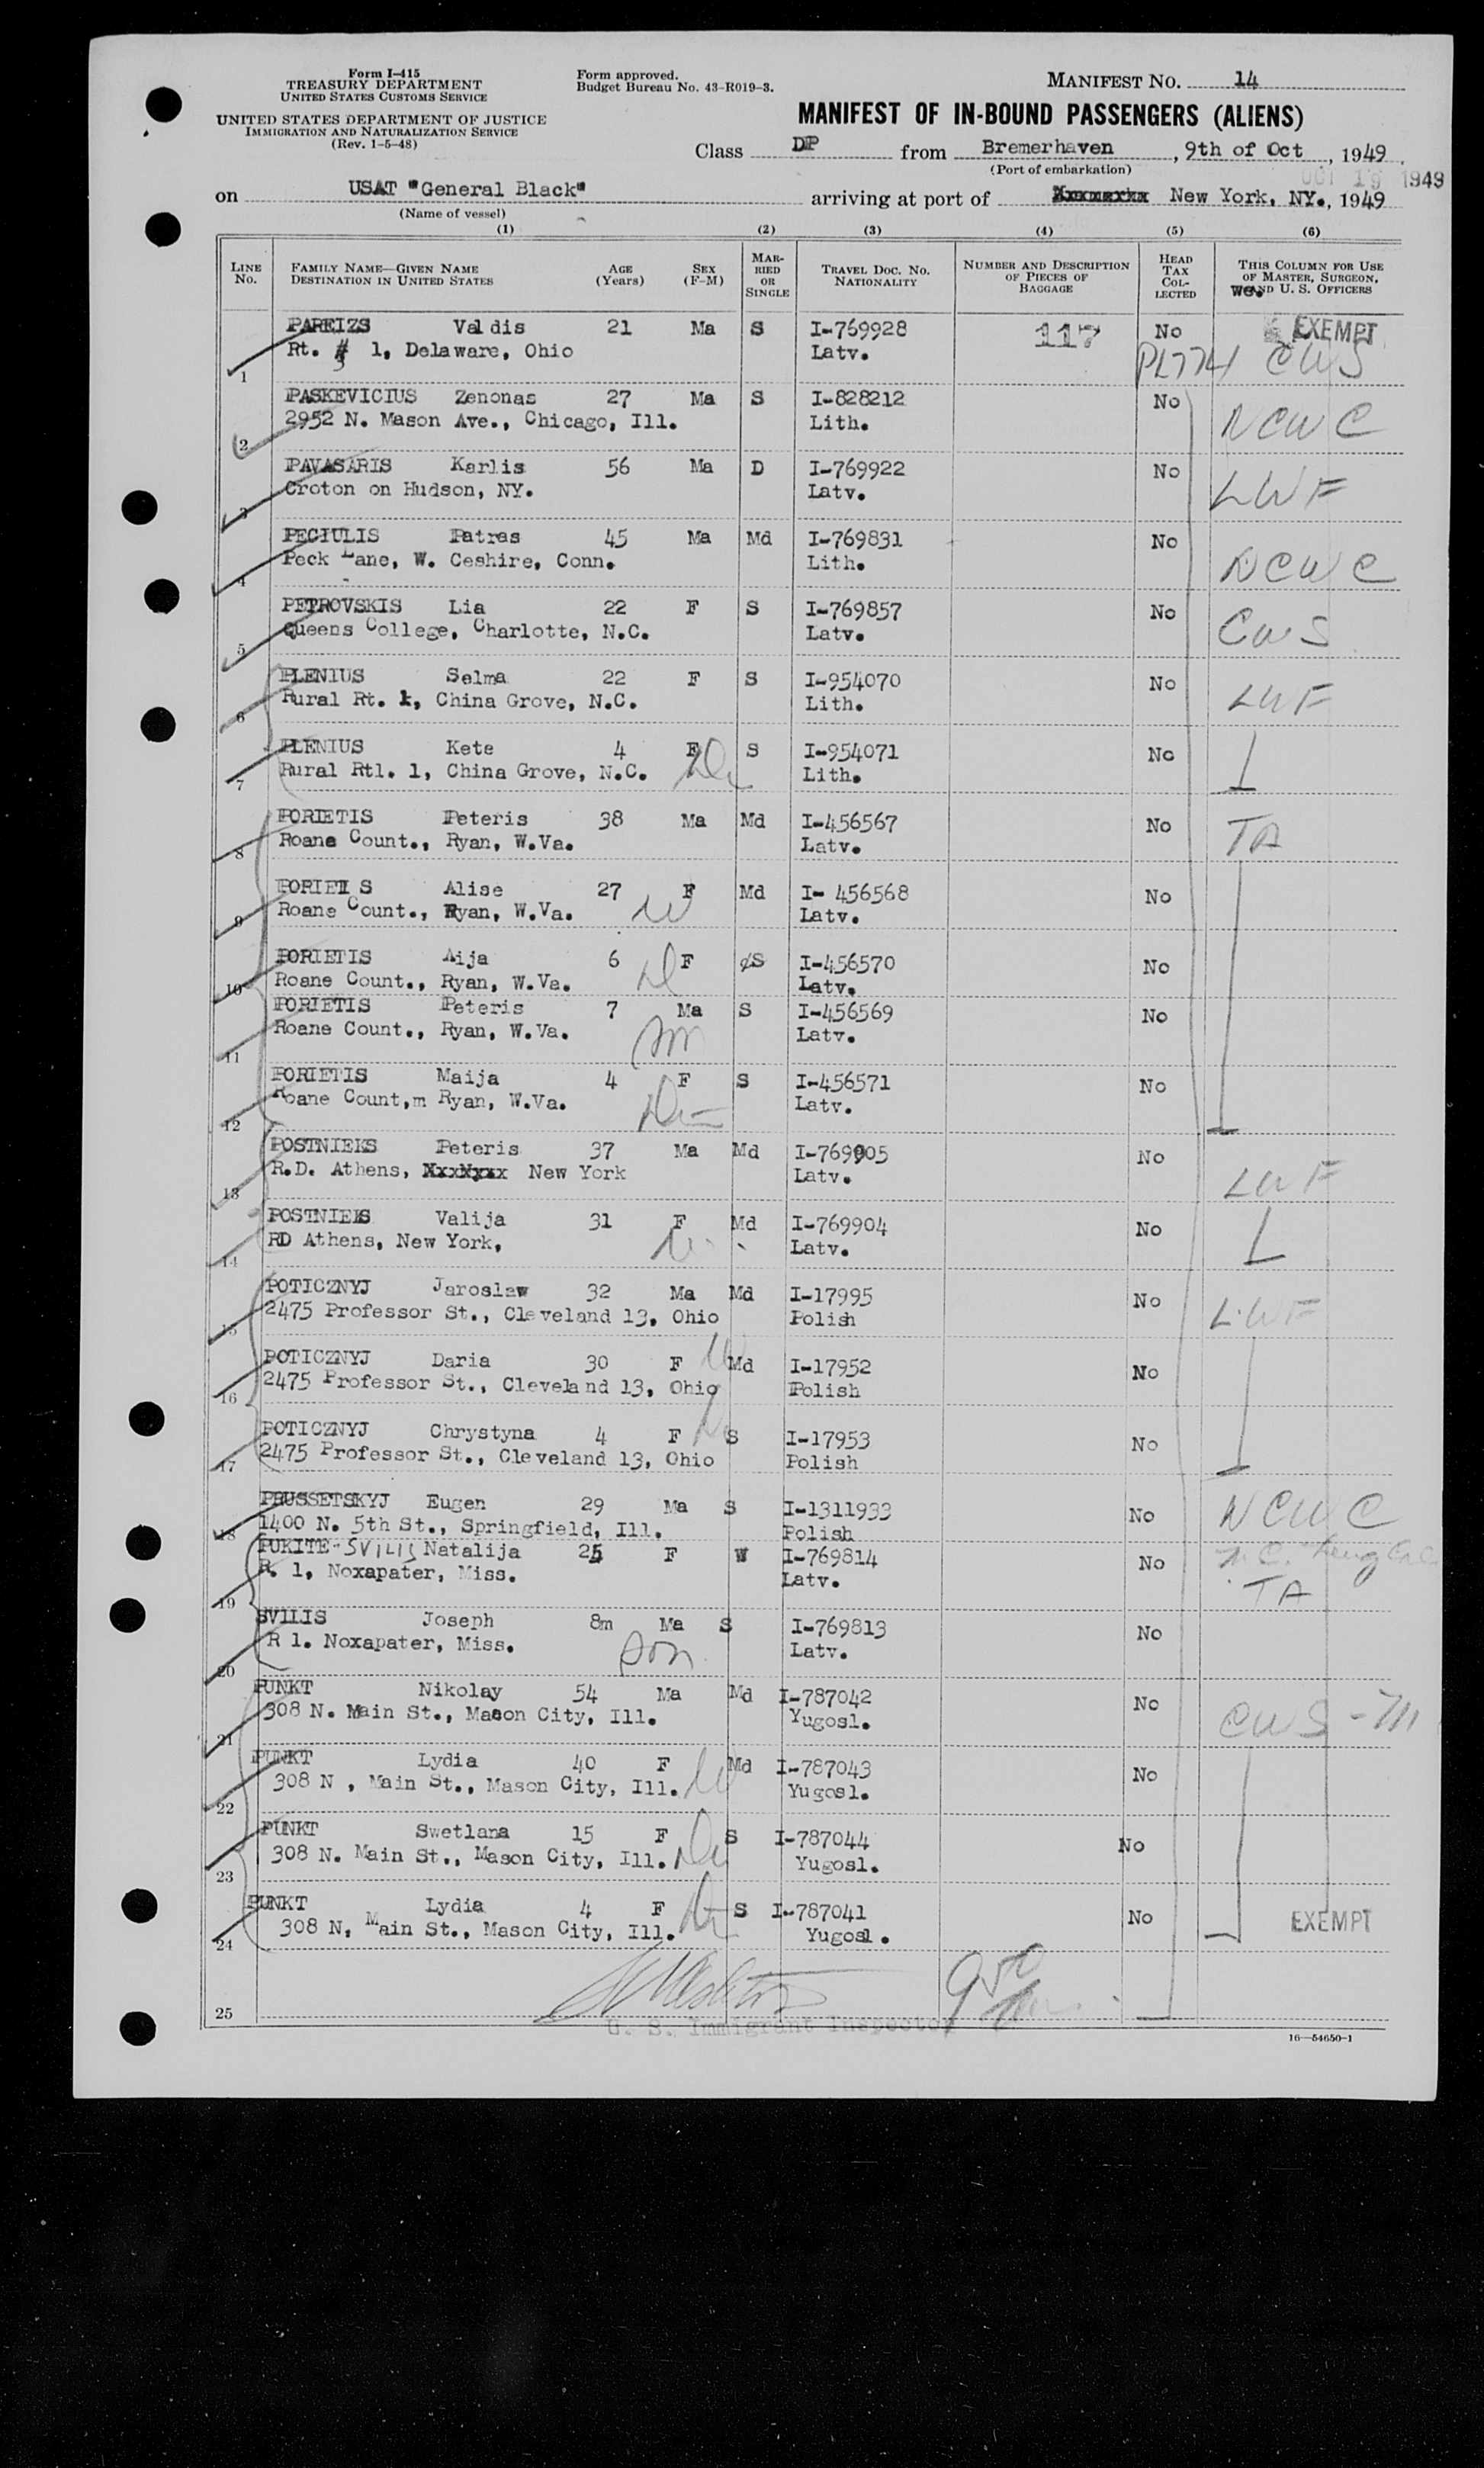 Form I-415
TREASURY DEPARTMENT
UNITED STATES CUSTOMS SERVICE
UNITED STATES DEPARTMENT OF JUSTICE
IMMIGRATION AND NATURALIZATION SERVICE
(Rev. 1-5-48)
Form approved.
Budget Bureau No. 43-R019-3.
MANIFEST NO. 14
MANIFEST OF IN-BOUND PASSENGERS (ALIENS)
Class DP from Bremerhaven, 9th of Oct, 1949
(Port of embarkation)
OCT 19 1949
on USAT "General Black" arriving at port of New York, NY., 1949
(Name of vessel)
(1) (2) (3) (4) (5) (6)
LINE NO.
FAMILY NAME—GIVEN NAME
DESTINATION IN UNITED STATES
AGE (Years)
SEX (F-M)
MARRIED OR SINGLE
TRAVEL DOC. NO.
NATIONALITY
NUMBER AND DESCRIPTION OF PIECES OF BAGGAGE
HEAD TAX COLLECTED
THIS COLUMN FOR USE OF MASTER, SURGEON, AND U. S. OFFICERS
1 PAREIZS Valdis 21 Ma S I-769928 117 No EXEMPT
Rt. # 1, Delaware, Ohio Latv. PL774 CWS
3
2 PASKEVICIUS Zenonas 27 Ma S I-828212 No
2952 N. Mason Ave., Chicago, Ill. Lith. NCWC
3 PAVASARIS Karlis 56 Ma D I-769922 No
Croton on Hudson, NY. Latv. LWF
4 PECIULIS Patras 45 Ma Md I-769831 No
Peck Lane, W. Ceshire, Conn. Lith. NCWC
5 PETROVSKIS Lia 22 F S I-769857 No
Queens College, Charlotte, N.C. Latv. CWS
6 PLENIUS Selma 22 F S I-954070 No
Rural Rt. 1, China Grove, N.C. Lith. LWF
7 PLENIUS Kete 4 F S I-954071 No
Rural Rtl. 1, China Grove, N.C. Lith.
8 PORIETIS Peteris 38 Ma Md I-456567 No
Roane Count., Ryan, W.Va. Latv. TA
9 PORIETIS Alise 27 F Md I- 456568 No
Roane Count., Ryan, W.Va. W Latv.
10 PORIETIS Aija 6 F S I-456570 No
Roane Count., Ryan, W.Va. Latv.
11 PORIETIS Peteris 7 Ma S I-456569 No
Roane Count., Ryan, W.Va. Latv.
12 PORIETIS Maija 4 F S I-456571 No
Roane Count,m Ryan, W.Va. Latv.
13 POSTNIEKS Peteris 37 Ma Md I-769905 No
R.D. Athens, New York Latv. LWF
14 POSTNIEKS Valija 31 F Md I-769904 No
RD Athens, New York, Latv.
15 POTICZNYJ Jaroslaw 32 Ma Md I-17995 No
2475 Professor St., Cleveland 13, Ohio Polish LWF
16 POTICZNYJ Daria 30 F W Md I-17952 No
2475 Professor St., Cleveland 13, Ohio Polish
17 POTICZNYJ Chrystyna 4 F S I-17953 No
2475 Professor St., Cleveland 13, Ohio Polish
18 PRUSSETSKYJ Eugen 29 Ma S I-1311933 No NCWC
1400 N. 5th St., Springfield, Ill. Polish
19 PUKITE-SVILIS Natalija 25 F W I-769814 No
R. 1, Noxapater, Miss. Latv. TA
20 SVILIS Joseph 8m Ma S I-769813 No
R 1. Noxapater, Miss. son Latv.
21 PUNKT Nikolay 54 Ma Md I-787042 No
308 N. Main St., Mason City, Ill. Yugosl. CWS
22 PUNKT Lydia 40 F Md I-787043 No
308 N , Main St., Mason City, Ill. W Yugosl.
23 PUNKT Swetlana 15 F S I-787044 No
308 N. Main St., Mason City, Ill. Yugosl.
24 PUNKT Lydia 4 F S I-787041 No EXEMPT
308 N, Main St., Mason City, Ill. Yugosl.
25
U. S. Immigrant Inspector
16—54650-1